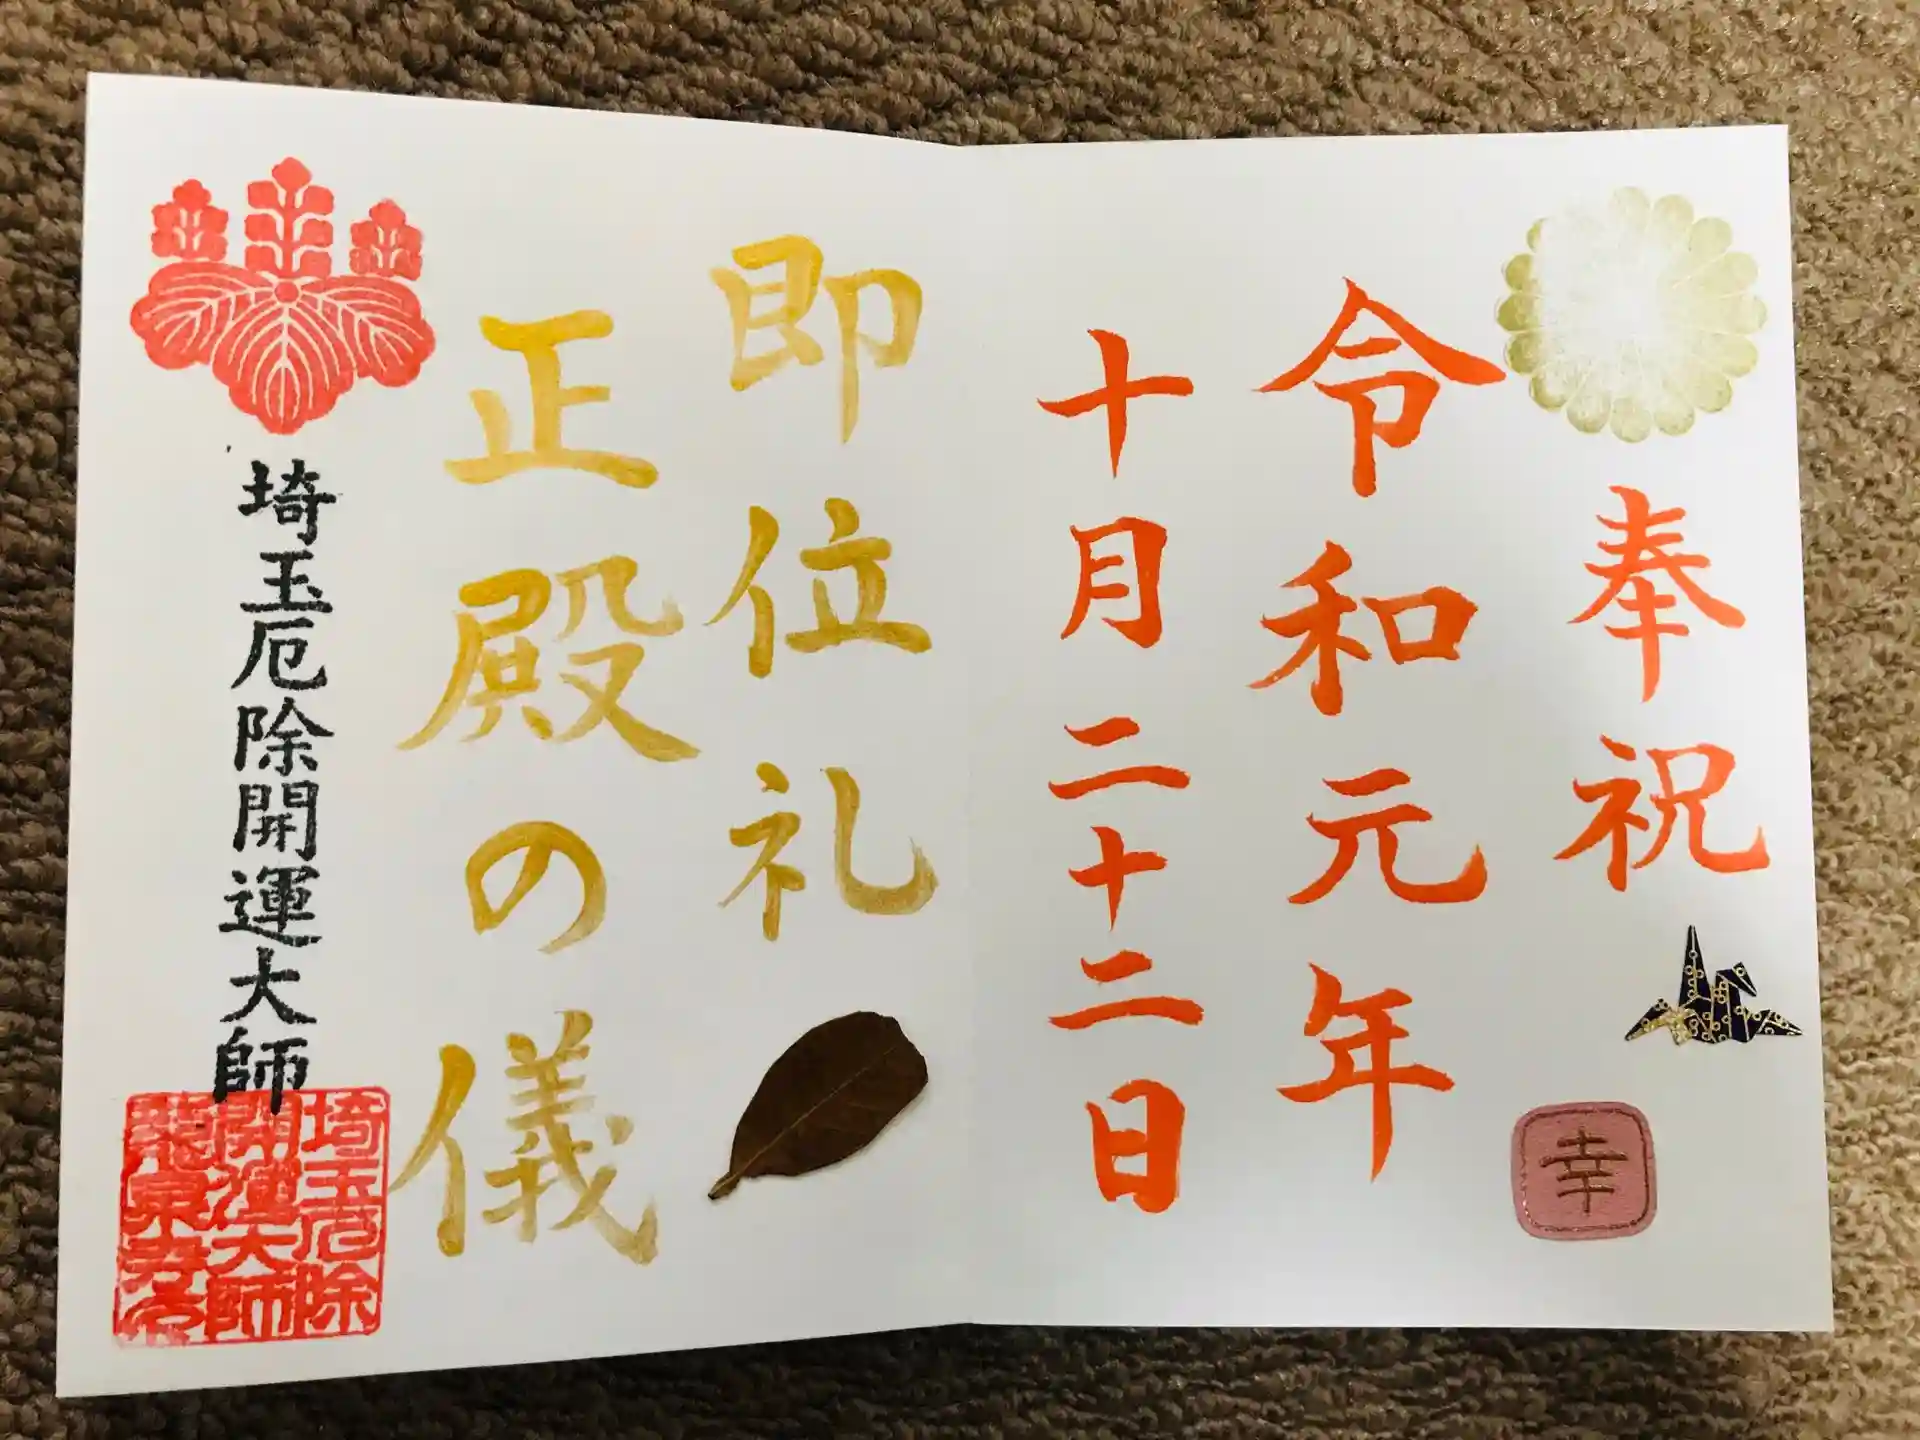 奉祝
幸
令和元年
十月二十二日
即位礼
正殿の儀
埼玉厄除開運大師
埼玉厄除
開運大師
龍泉寺